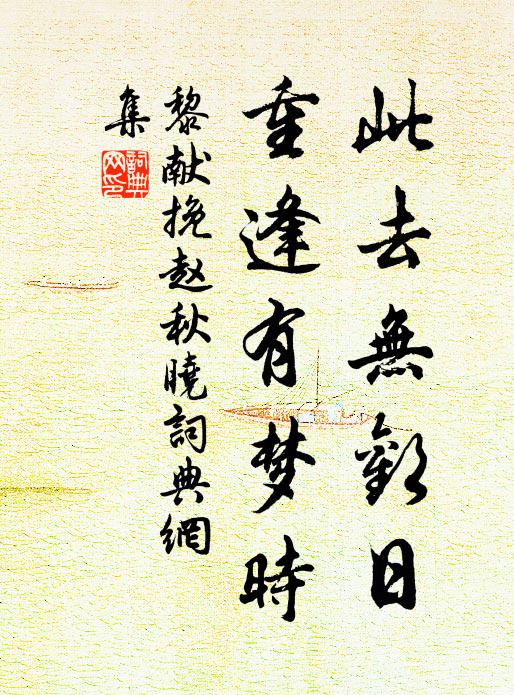 此去無歡日
重逢有梦時
黎献挽赵秋曉詞典網
集
詞典
网印